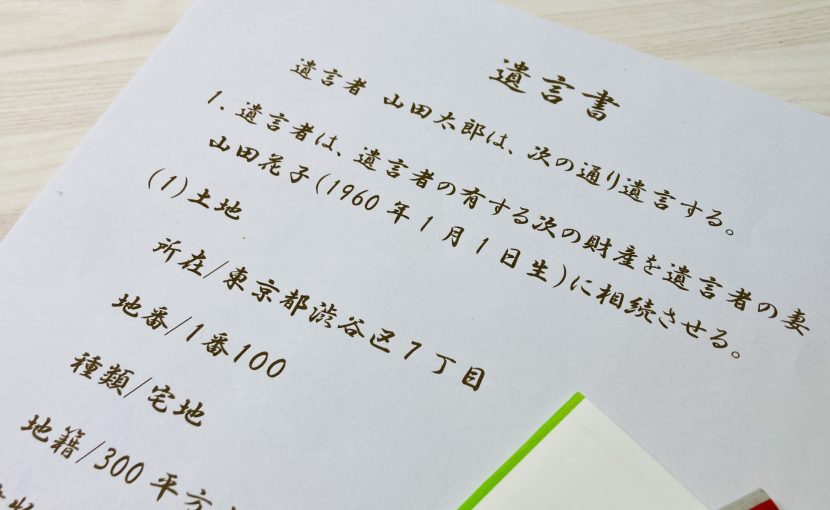 遺言書
遺言者 山田太郎は、次の通り遺言する。
1. 遺言者は、遺言者の有する次の財産を遺言者の妻
山田花子(1960年1月1日生)に相続させる。
(1)土地
所在/東京都渋谷区7丁目
地番/1番100
種類/宅地
地籍/300平方